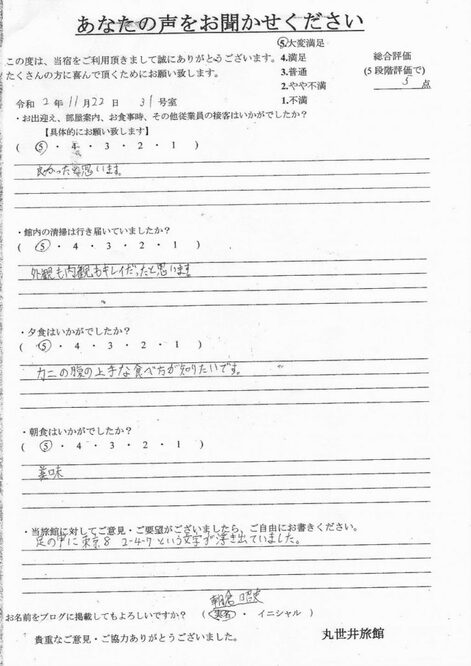 あなたの声をお聞かせください
この度は、当宿をご利用頂きまして誠にありがとうございます。
たくさんの方に喜んで頂くためにお願い致します。
⑤大変満足
4.満足
3.普通
2.やや不満
1.不満
総合評価
(5段階評価で)
5 点
令和 2年 11月 22日 31号室
・お出迎え、部屋案内、お食事時、その他従業員の接客はいかがでしたか?
【具体的にお願い致します】
( ⑤ ・ 4 ・ 3 ・ 2 ・ 1 )
良かったと思います。
・館内の清掃は行き届いていましたか?
( ⑤ ・ 4 ・ 3 ・ 2 ・ 1 )
外観も内観もキレイだったと思います
・夕食はいかがでしたか?
( ⑤ ・ 4 ・ 3 ・ 2 ・ 1 )
カニの腹の上手な食べ方が知りたいです。
・朝食はいかがでしたか?
( ⑤ ・ 4 ・ 3 ・ 2 ・ 1 )
美味
・当旅館に対してご意見・ご要望がございましたら、ご自由にお書きください。
足の甲に東京8 2-4-7という文字が浮き出ていました。
お名前をブログに掲載してもよろしいですか? ( 実名 ・ イニシャル )
貴重なご意見・ご協力ありがとうございました。
丸世井旅館